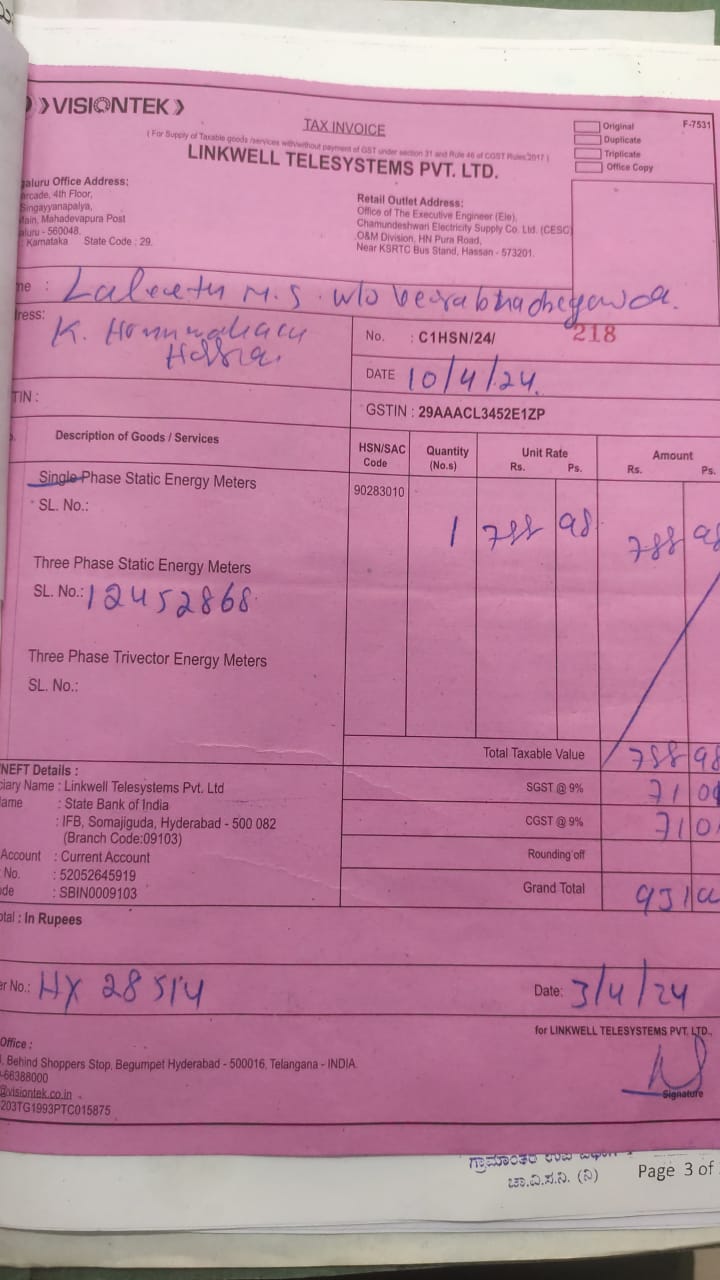 VISIONTEK
TAX INVOICE
( For Supply of Taxable goods /services with/without payment of GST under section 31 and Rule 46 of CGST Rules 2017 )
LINKWELL TELESYSTEMS PVT. LTD.
Original
Duplicate
Triplicate
Office Copy
F-7531
galuru Office Address:
arcade, 4th Floor,
Singayyanapalya,
Main, Mahadevapura Post
aluru - 560048.
: Karnataka State Code : 29.
Retail Outlet Address:
Office of The Executive Engineer (Ele),
Chamundeshwari Electricity Supply Co. Ltd. (CESC)
O&M Division, HN Pura Road,
Near KSRTC Bus Stand, Hassan - 573201.
me : M.S. w/o
ress: K.
No. : C1HSN/24/ 218
DATE 10/4/24.
TIN :
GSTIN : 29AAACL3452E1ZP
Description of Goods / Services
HSN/SAC Code
Quantity (No.s)
Unit Rate
Rs. Ps.
Amount
Rs. Ps.
Single Phase Static Energy Meters
90283010
SL. No.:
1 788 98 788 98
Three Phase Static Energy Meters
SL. No.: 12452868
Three Phase Trivector Energy Meters
SL. No.:
Total Taxable Value 788 98
SGST @ 9% 71 0
CGST @ 9% 71 0
Rounding off
Grand Total 931
NEFT Details :
ciary Name : Linkwell Telesystems Pvt. Ltd
ame : State Bank of India
: IFB, Somajiguda, Hyderabad - 500 082
(Branch Code:09103)
Account : Current Account
No. : 52052645919
de : SBIN0009103
otal : In Rupees
er No.: HX 28514
Date: 3/4/24
for LINKWELL TELESYSTEMS PVT. LTD.,
Signature
Office :
, Behind Shoppers Stop, Begumpet Hyderabad - 500016, Telangana - INDIA.
-66388000
@visiontek.co.in
203TG1993PTC015875
ಚಾ.ವಿ.ಸ.ನಿ. (ನಿ)
Page 3 of